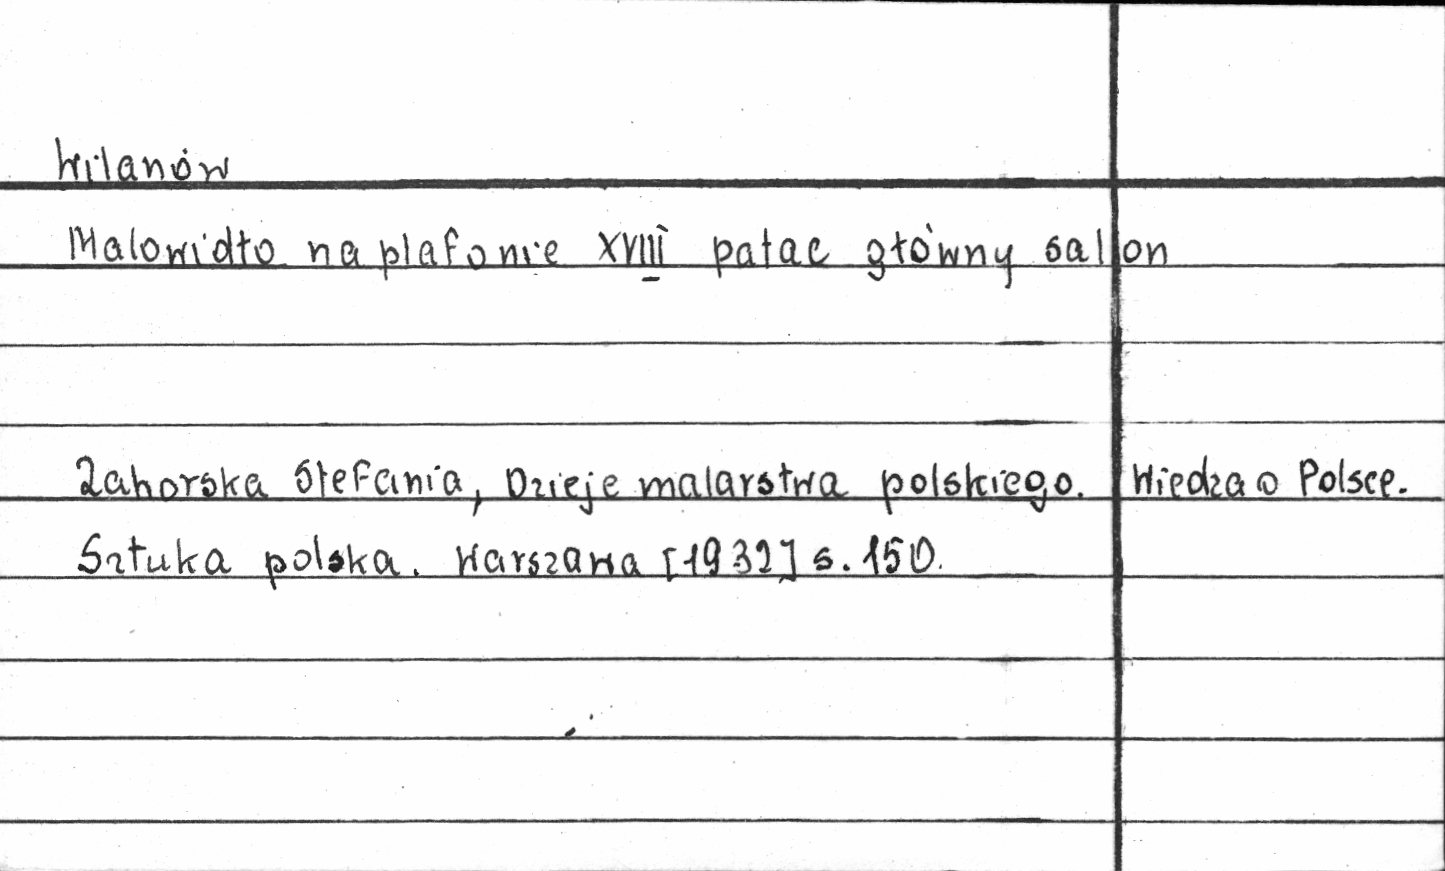 Wilanów
Malowidło na plafonie XVIII pałac główny salon
Zahorska Stefania, Dzieje malarstwa polskiego. Wiedza o Polsce.
Sztuka polska. Warszawa [1932] s. 150.